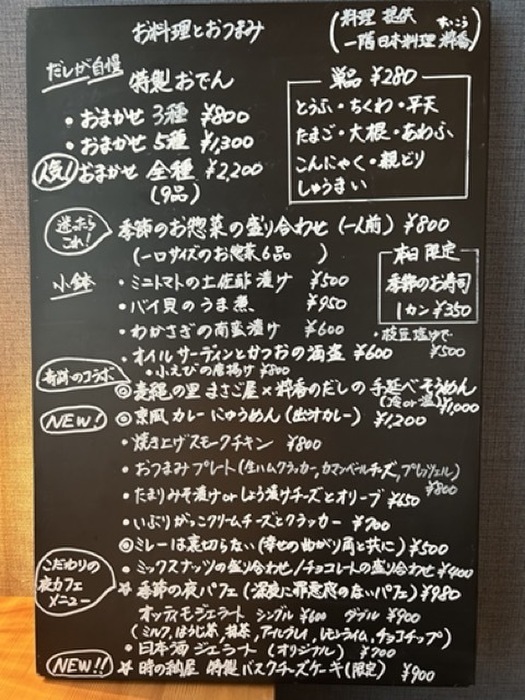 お料理とおつまみ
(料理 提供
一階 日本料理 粋香)
すいこう
だしが自慢
特製おでん
・おまかせ 3種 ¥800
・おまかせ 5種 ¥1,300
人気! おまかせ 全種 ¥2,200
(9品)
単品 ¥280
とうふ・ちくわ・平天
たまご・大根・あわふ
こんにゃく・親どり
しゅうまい
迷ったらこれ!
季節のお惣菜の盛り合わせ (一人前) ¥800
(一口サイズのお惣菜6品 )
本日限定
季節のお寿司
1カン ¥350
小鉢
・ミニトマトの土佐酢漬け ¥500
・バイ貝のうま煮 ¥950
・わかさぎの南蛮漬け ¥600
・枝豆塩ゆで ¥500
・オイルサーディンとかつおの酒盗 ¥600
・小えびの唐揚げ ¥800
奇跡のコラボ
◎麦縄の里 まさご屋×粋香のだしの 手延べそうめん
(冷or温) ¥1,000
NEW!
◎京風カレーにゅうめん (出汁カレー) ¥1,200
・焼き上げスモークチキン ¥800
・おつまみプレート (生ハムクラッカー, カマンベールチーズ, プレッツェル)
¥800
・たまりみそ漬け or しょう漬けチーズとオリーブ ¥650
・いぶりがっこクリームチーズとクラッカー ¥700
◎ミレーは裏切らない (幸せの曲がり角と共に) ¥500
・ミックスナッツの盛り合わせ/チョコレートの盛り合わせ ¥400
こだわりの
夜カフェ
メニュー
☆季節の夜パフェ (深夜に罪悪感のないパフェ) ¥980
オッティモジェラート シングル ¥600 ダブル ¥900
(ミルク, ほうじ茶, 抹茶, アールグレイ, レモンライム, チョコチップ)
・日本酒ジェラート (オリジナル) ¥700
NEW!!
☆時の納屋 特製バスクチーズケーキ (限定) ¥900